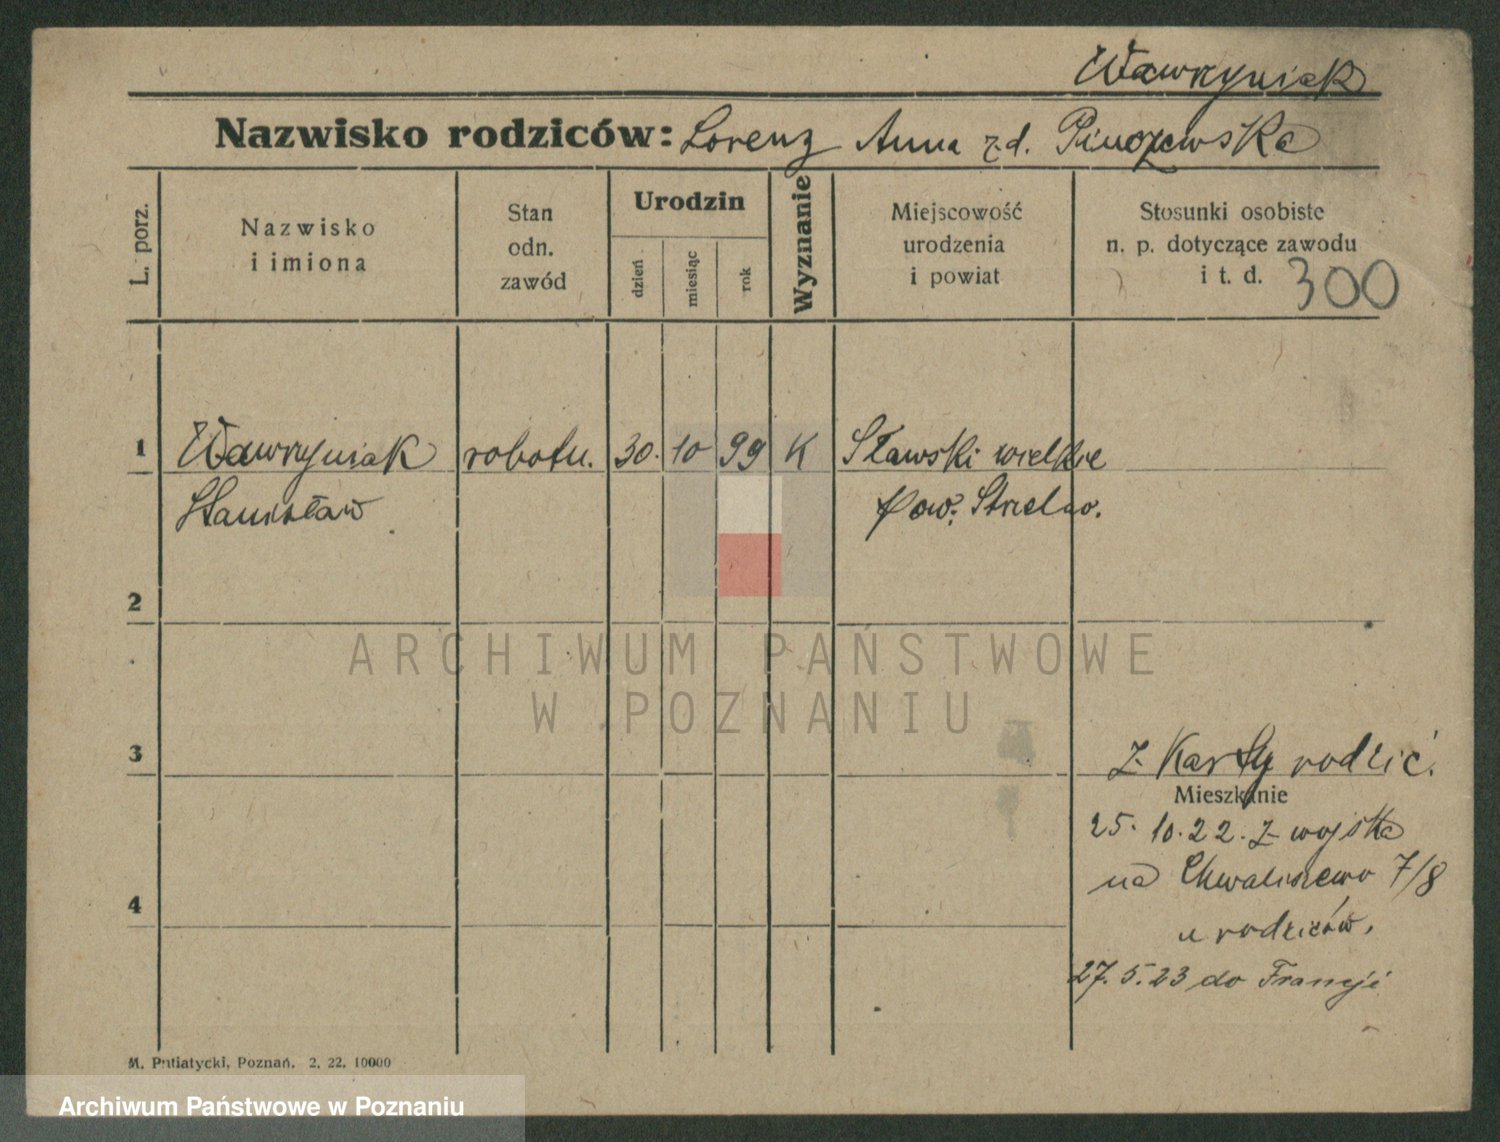 Wawrzyniak
Nazwisko rodziców: Lorenz Anna z d. Pinczewska
L. porz.
Nazwisko
i imiona
Stan
odn.
zawód
Urodzin
dzień
miesiąc
rok
Wyznanie
Miejscowość
urodzenia
i powiat
Stosunki osobiste
n. p. dotyczące zawodu
i t. d. 300
1 Wawrzyniak robotn. 30. 10 99 K Sławski wielkie
Stanisław pow. Strzelno.
2
ARCHIWUM PAŃSTWOWE
W POZNANIU
3
z Karty rodzić.
Mieszkanie
25. 10. 22. z wojska
na Chwaliszewo 7/8
4
u rodziców,
27. 5. 23 do Francji
M. Putiatycki, Poznań. 2. 22. 10000
Archiwum Państwowe w Poznaniu